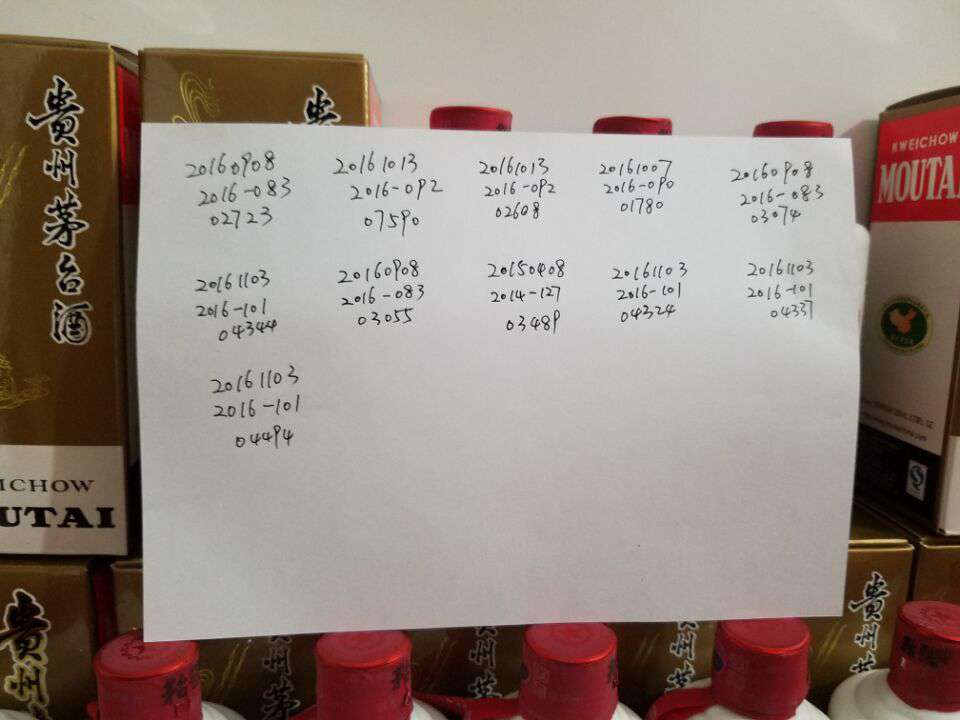 貴州茅台酒
ICHOW
UTAI
貴
20160908
2016-083
02723
20161013
2016-092
07590
20161013
2016-092
02608
20161007
2016-090
01780
20160908
2016-083
03074
20161103
2016-101
04344
20160908
2016-083
03055
20150408
2014-127
03489
20161103
2016-101
04324
20161103
2016-101
04337
20161103
2016-101
04494
KWEICHOW
MOUTA
貴州
貴州茅